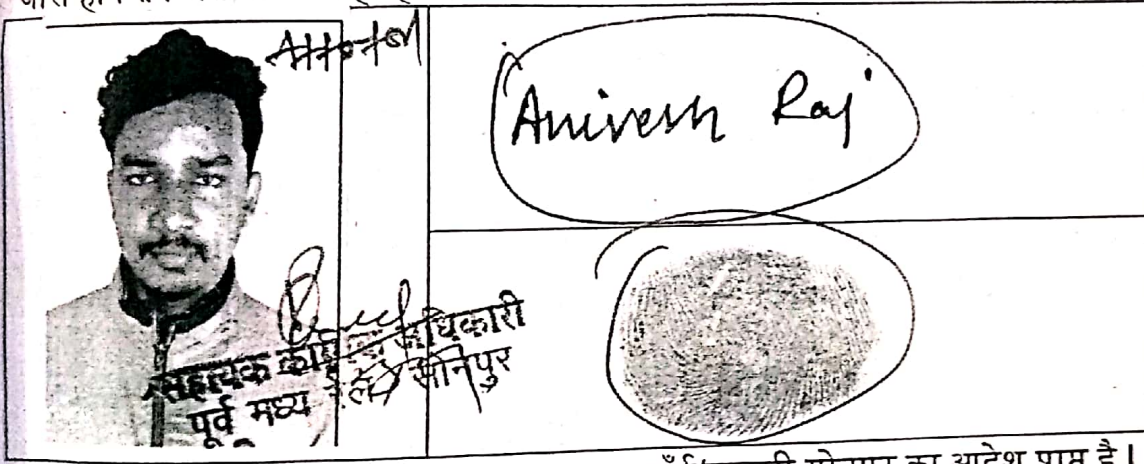 Attested
Anivesh Raj
सहायक कार्मिक अधिकारी
पूर्व मध्य रेल, सोनपुर
का आदेश प्राप्त है।